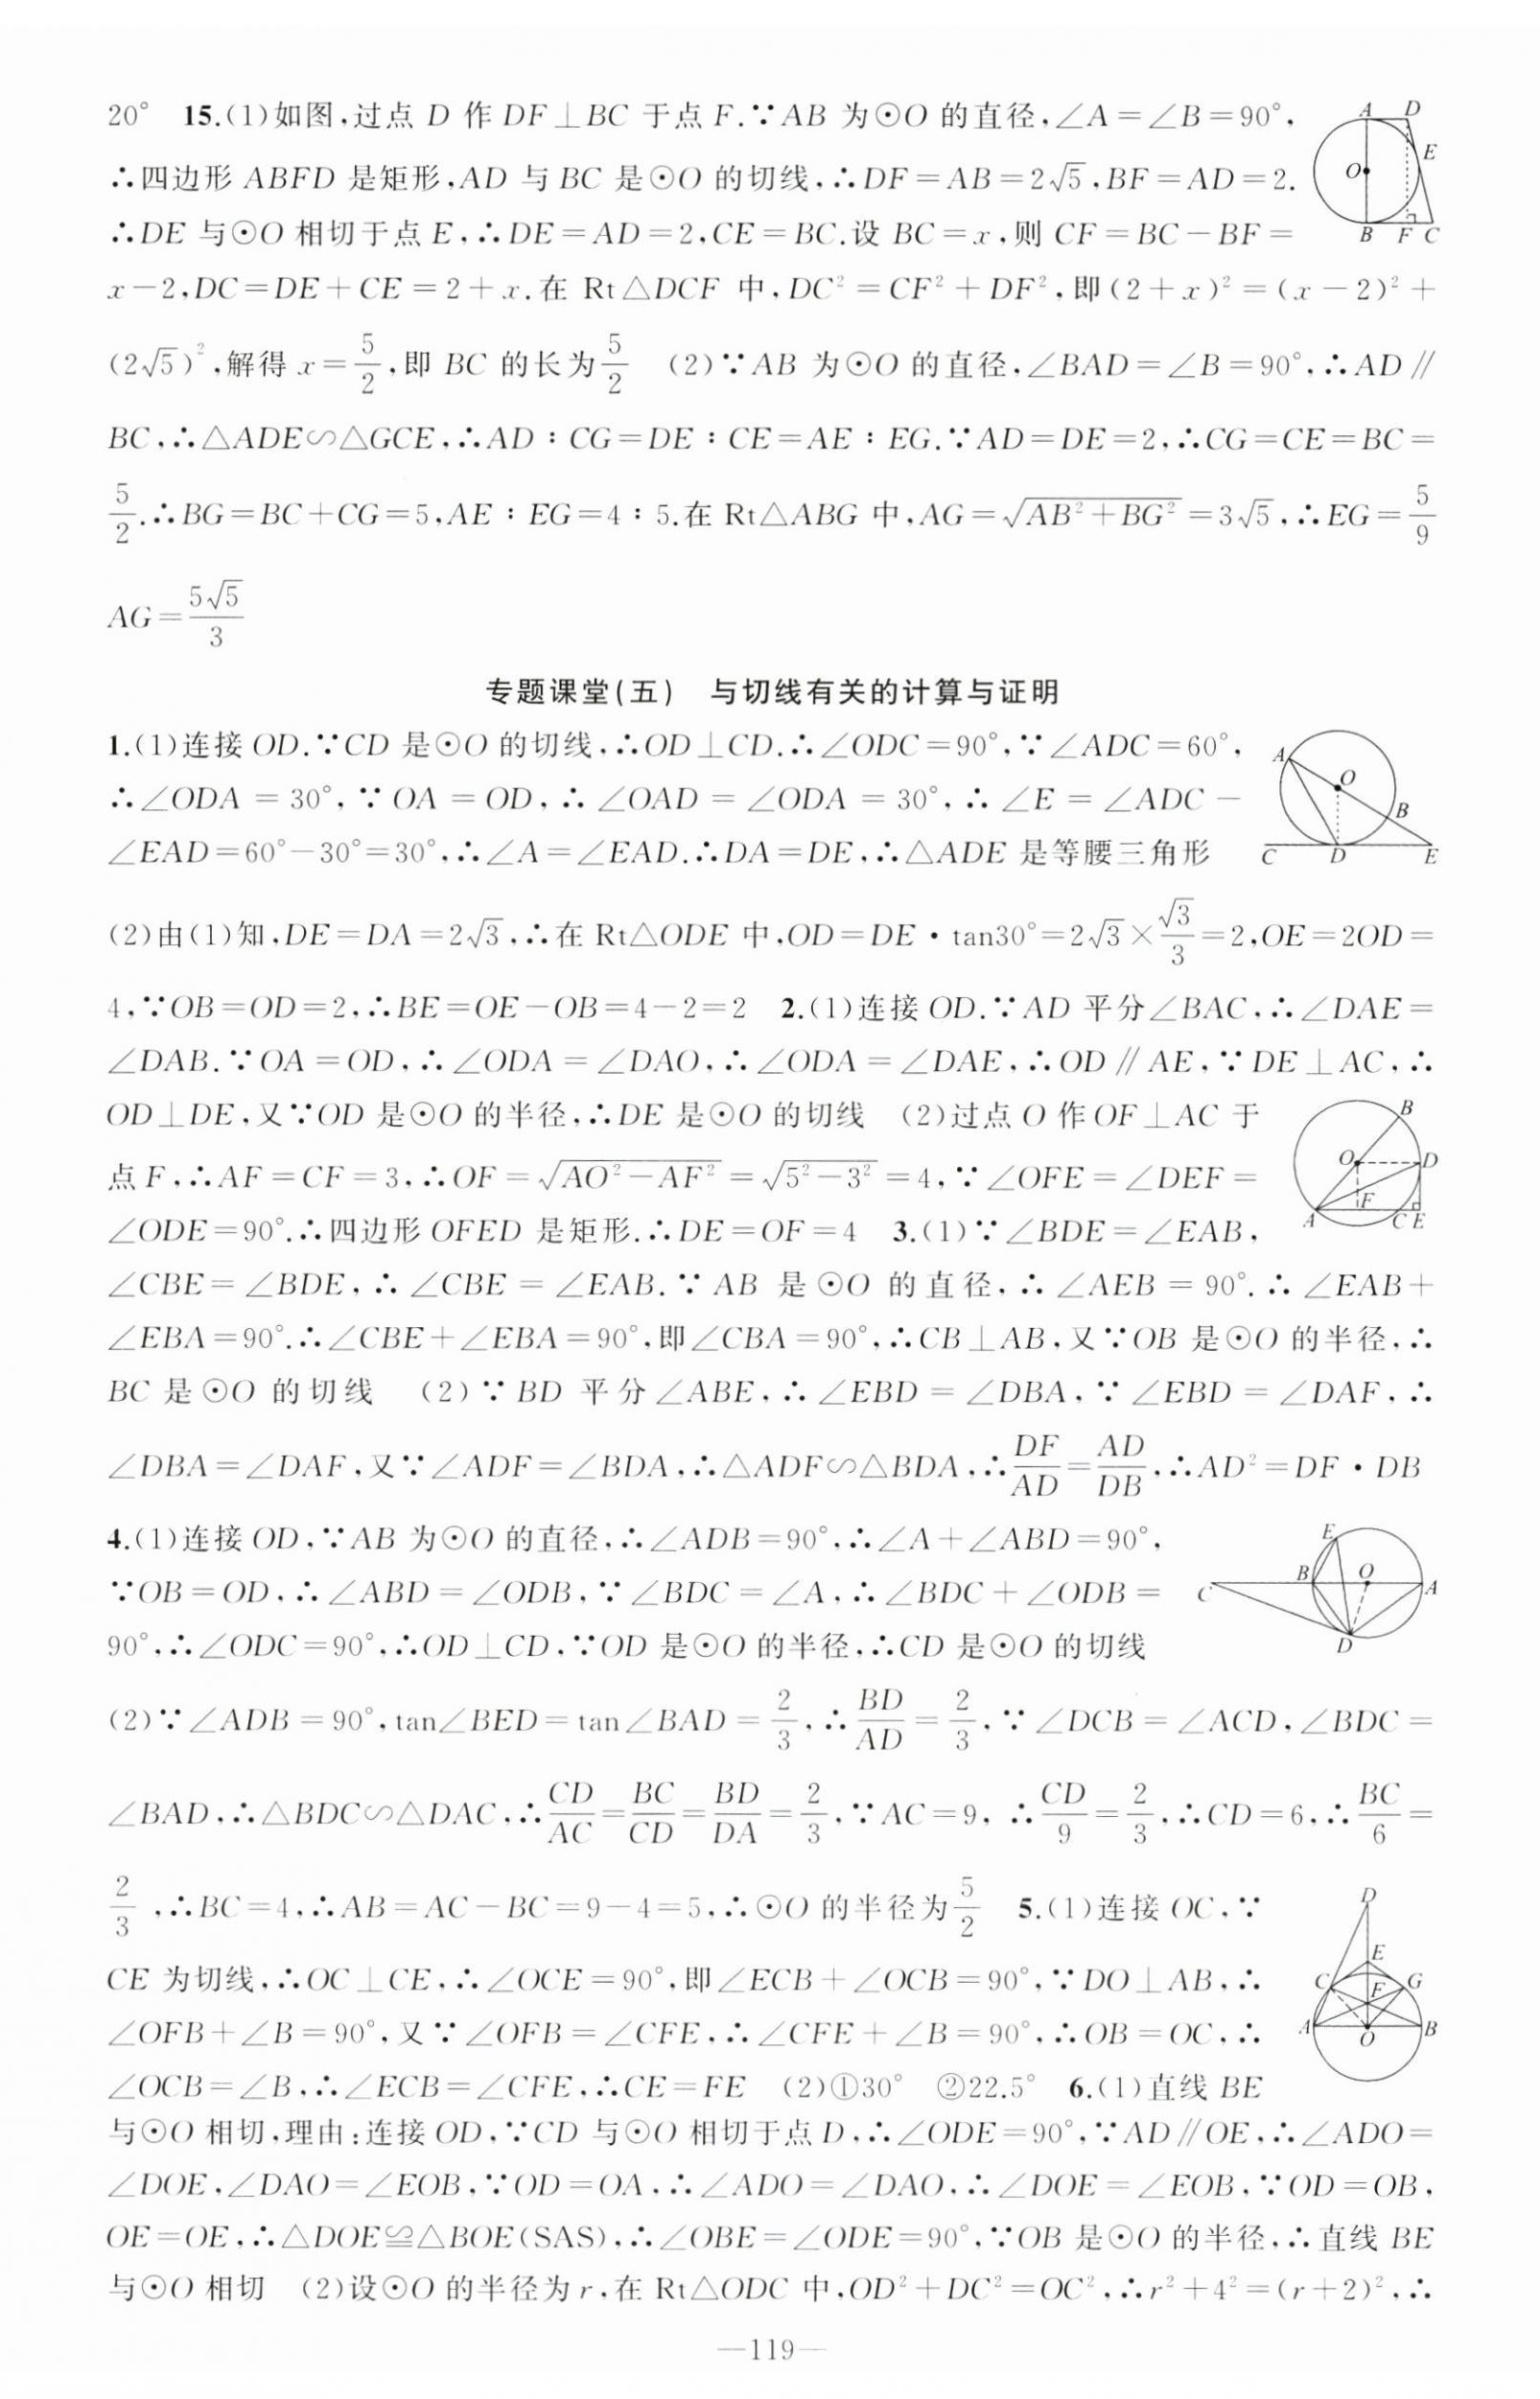 20° 15.(1)如图,过点 D 作 DF⊥BC 于点 F.∵AB 为⊙O 的直径,∠A=∠B=90°,
∴四边形 ABFD 是矩形,AD 与 BC 是⊙O 的切线,∴DF=AB=2√5,BF=AD=2.
∴DE 与⊙O 相切于点 E,∴DE=AD=2,CE=BC.设 BC=x,则 CF=BC-BF=
x-2,DC=DE+CE=2+x.在 Rt△DCF 中,DC²=CF²+DF²,即(2+x)²=(x-2)²+
(2√5)²,解得 x=5/2,即 BC 的长为5/2 (2)∵AB 为⊙O 的直径,∠BAD=∠B=90°,∴AD∥
BC,∴△ADE∽△GCE,∴AD∶CG=DE∶CE=AE∶EG.∵AD=DE=2,∴CG=CE=BC=
5/2.∴BG=BC+CG=5,AE∶EG=4∶5.在 Rt△ABG 中,AG=√(AB²+BG²)=3√5,∴EG=5/9
AG=5√5/3
A D E O B F C
专题课堂(五) 与切线有关的计算与证明
1.(1)连接 OD.∵CD 是⊙O 的切线,∴OD⊥CD.∴∠ODC=90°,∵∠ADC=60°,
∴∠ODA=30°,∵OA=OD,∴∠OAD=∠ODA=30°,∴∠E=∠ADC-
∠EAD=60°-30°=30°,∴∠A=∠EAD.∴DA=DE,∴△ADE 是等腰三角形
A O B C D E
(2)由(1)知,DE=DA=2√3,∴在 Rt△ODE 中,OD=DE·tan30°=2√3×√3/3=2,OE=2OD=
4,∵OB=OD=2,∴BE=OE-OB=4-2=2 2.(1)连接 OD.∵AD 平分∠BAC,∴∠DAE=
∠DAB.∵OA=OD,∴∠ODA=∠DAO,∴∠ODA=∠DAE,∴OD∥AE,∵DE⊥AC,∴
OD⊥DE,又∵OD 是⊙O 的半径,∴DE 是⊙O 的切线 (2)过点 O 作 OF⊥AC 于
点 F,∴AF=CF=3,∴OF=√(AO²-AF²)=√(5²-3²)=4,∵∠OFE=∠DEF=
∠ODE=90°.∴四边形 OFED 是矩形.∴DE=OF=4 3.(1)∵∠BDE=∠EAB,
B O D F A C E
∠CBE=∠BDE,∴∠CBE=∠EAB.∵AB 是⊙O 的直径,∴∠AEB=90°.∴∠EAB+
∠EBA=90°.∴∠CBE+∠EBA=90°,即∠CBA=90°,∴CB⊥AB,又∵OB 是⊙O 的半径,∴
BC 是⊙O 的切线 (2)∵BD 平分∠ABE,∴∠EBD=∠DBA,∵∠EBD=∠DAF,∴
∠DBA=∠DAF,又∵∠ADF=∠BDA,∴△ADF∽△BDA,∴DF/AD=AD/DB,∴AD²=DF·DB
4.(1)连接 OD,∵AB 为⊙O 的直径,∴∠ADB=90°,∴∠A+∠ABD=90°,
∵OB=OD,∴∠ABD=∠ODB,∵∠BDC=∠A,∴∠BDC+∠ODB=
90°,∴∠ODC=90°,∴OD⊥CD,∵OD 是⊙O 的半径,∴CD 是⊙O 的切线
E B O A C D
(2)∵∠ADB=90°,tan∠BED=tan∠BAD=2/3,∴BD/AD=2/3,∵∠DCB=∠ACD,∠BDC=
∠BAD,∴△BDC∽△DAC,∴CD/AC=BC/CD=BD/DA=2/3,∵AC=9, ∴CD/9=2/3,∴CD=6,∴BC/6=
2/3,∴BC=4,∴AB=AC-BC=9-4=5,∴⊙O 的半径为5/2 5.(1)连接 OC,∵
CE 为切线,∴OC⊥CE,∴∠OCE=90°,即∠ECB+∠OCB=90°,∵DO⊥AB,∴
∠OFB+∠B=90°,又∵∠OFB=∠CFE,∴∠CFE+∠B=90°,∴OB=OC,∴
∠OCB=∠B,∴∠ECB=∠CFE,∴CE=FE (2)①30° ②22.5° 6.(1)直线 BE
D E C F G A O B
与⊙O 相切,理由:连接 OD,∵CD 与⊙O 相切于点 D,∴∠ODE=90°,∵AD∥OE,∴∠ADO=
∠DOE,∠DAO=∠EOB,∵OD=OA,∴∠ADO=∠DAO,∴∠DOE=∠EOB,∵OD=OB,
OE=OE,∴△DOE≌△BOE(SAS),∴∠OBE=∠ODE=90°,∵OB 是⊙O 的半径,∴直线 BE
与⊙O 相切 (2)设⊙O 的半径为 r,在 Rt△ODC 中,OD²+DC²=OC²,∴r²+4²=(r+2)²,∴
—119—